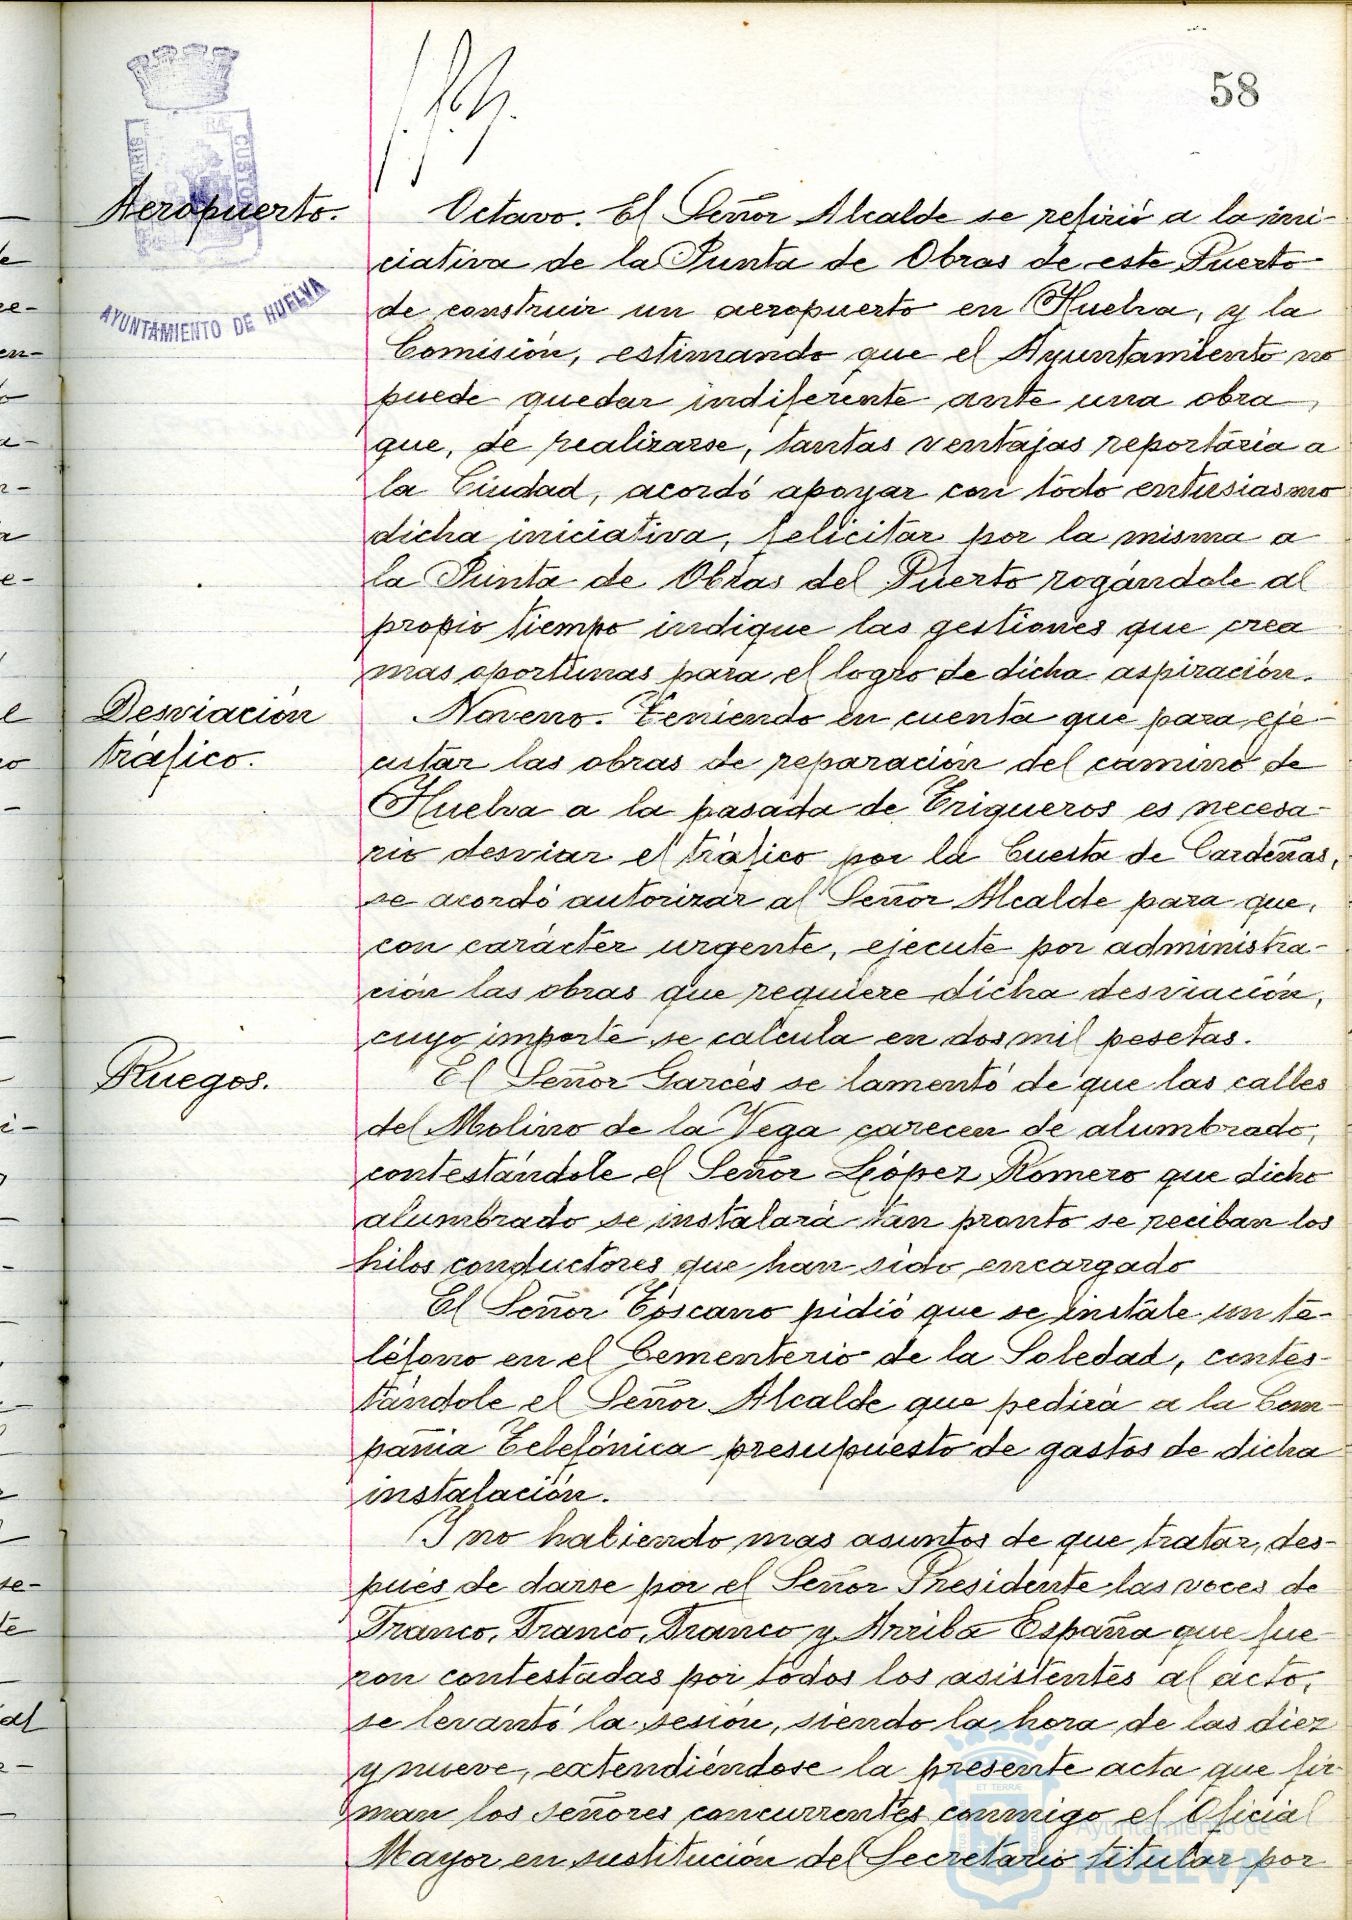 58
Aeropuerto.
AYUNTAMIENTO DE HUELVA
Octavo. El Señor Alcalde se refirió a la ini-
ciativa de la Junta de Obras de este Puerto
de construir un aeropuerto en Huelva, y la
Comisión, estimando que el Ayuntamiento no
puede quedar indiferente ante una obra,
que, de realizarse, tantas ventajas reportaría a
la Ciudad, acordó apoyar con todo entusiasmo
dicha iniciativa, felicitar por la misma a
la Junta de Obras del Puerto rogándole al
propio tiempo indique las gestiones que crea
mas oportunas para el logro de dicha aspiración.
Desviación
tráfico.
Noveno. Teniendo en cuenta que para eje-
cutar las obras de reparación del camino de
Huelva a la pasada de Trigueros es necesa-
rio desviar el tráfico por la Cuesta de Cardeñas,
se acordó autorizar al Señor Alcalde para que,
con carácter urgente, ejecute por administra-
ción las obras que requiere dicha desviación,
cuyo importe se calcula en dos mil pesetas.
Ruegos.
El Señor Garcés se lamentó de que las calles
del Molino de la Vega carecen de alumbrado,
contestándole el Señor López Romero que dicho
alumbrado se instalará tan pronto se reciban los
hilos conductores que han sido encargado
El Señor Toscano pidió que se instale un te-
léfono en el Cementerio de la Soledad, contes-
tándole el Señor Alcalde que pedirá a la Com-
pañia Telefónica presupuesto de gastos de dicha
instalación.
Y no habiendo mas asuntos de que tratar, des-
pués de darse por el Señor Presidente las voces de
Franco, Franco, Franco y Arriba España que fue-
ron contestadas por todos los asistentes al acto,
se levantó la sesión, siendo la hora de las diez
y nueve, extendiéndose la presente acta que fir-
man los señores concurrentes conmigo el Oficial
Mayor en sustitución del Secretario titular por
Ayuntamiento de
HUELVA